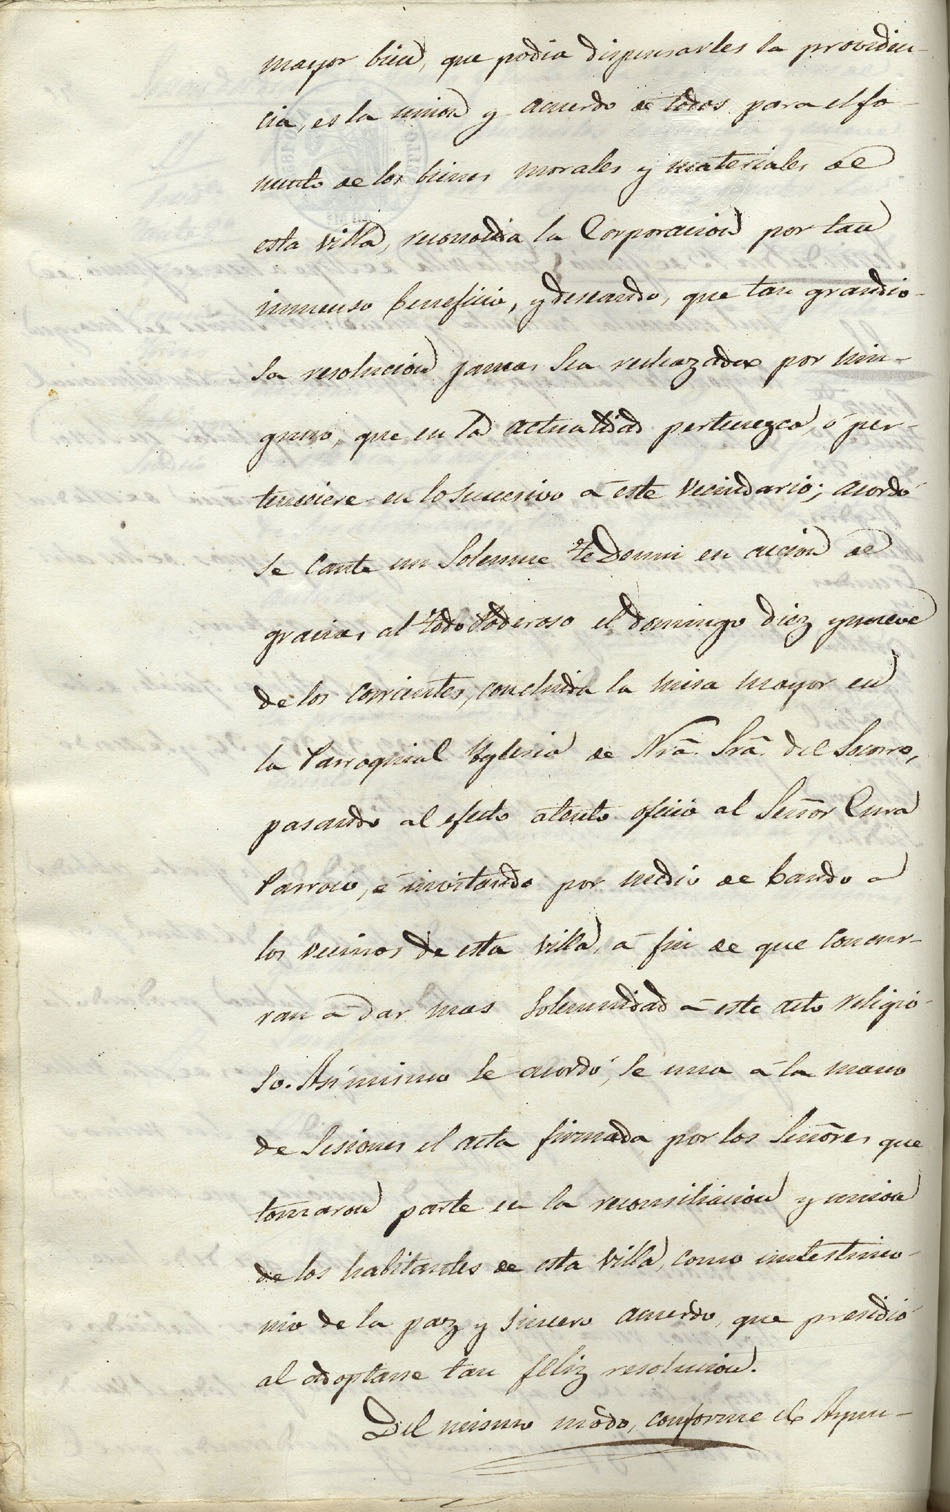 mayor bien, que podia dispensarles la providen-
cia, es la union y acuerdo de todos para el fo-
mento de los bienes morales y materiales de
esta villa, reconocida la Corporacion por tan
inmenso beneficio, y deseando, que tan grandio-
sa resolucion jamas sea rechazada por nin-
guno, que en la actualidad pertenezca, ó per-
teneciere en lo sucesivo á este vecindario; acordó
se cante un solemne Te Deum en accion de
gracias al Todo Poderoso el domingo diez y nueve
de los corrientes, concluida la misa mayor en
la Parroquial Yglesia de Nrã. Srã. del Socorro,
pasando al efecto atento oficio al Señor Cura
Parroco, é invitando por medio de bando a
los vecinos de esta villa, á fin de que concur-
ran á dar mas solemnidad á este acto religio-
so. Asi mismo se acordó, se una á la mano
de Sesiones el acta firmada por los Señores que
tomaron parte en la reconsiliacion y union
de los habitantes de esta villa, como un testimo-
nio de la paz y sincero acuerdo, que presidió
al adoptarse tan feliz resolucion.
Del mismo modo, conforme el Ayun-